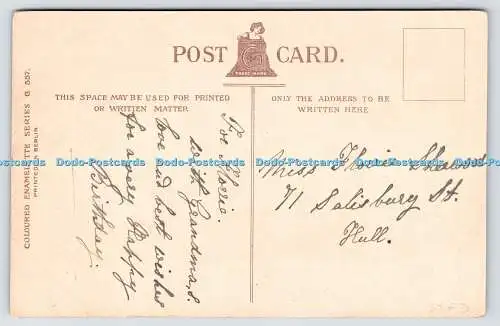 POST CARD.
G
TRADE MARK
THIS SPACE MAY BE USED FOR PRINTED
OR WRITTEN MATTER.
ONLY THE ADDRESS TO BE
WRITTEN HERE
COLOURED ENAMELETTE SERIES G 557.
PRINTED IN BERLIN
To Florrie.
with Grandma,s.
love and best wishes
for a very Happy
Birthday.
Miss Florrie
71 Salisbury St.
Hull.
Dodo-Postcards Dodo-Postcards Dodo-Postcards Dodo-Postcards Dodo-Postcards Dodo-Postcards